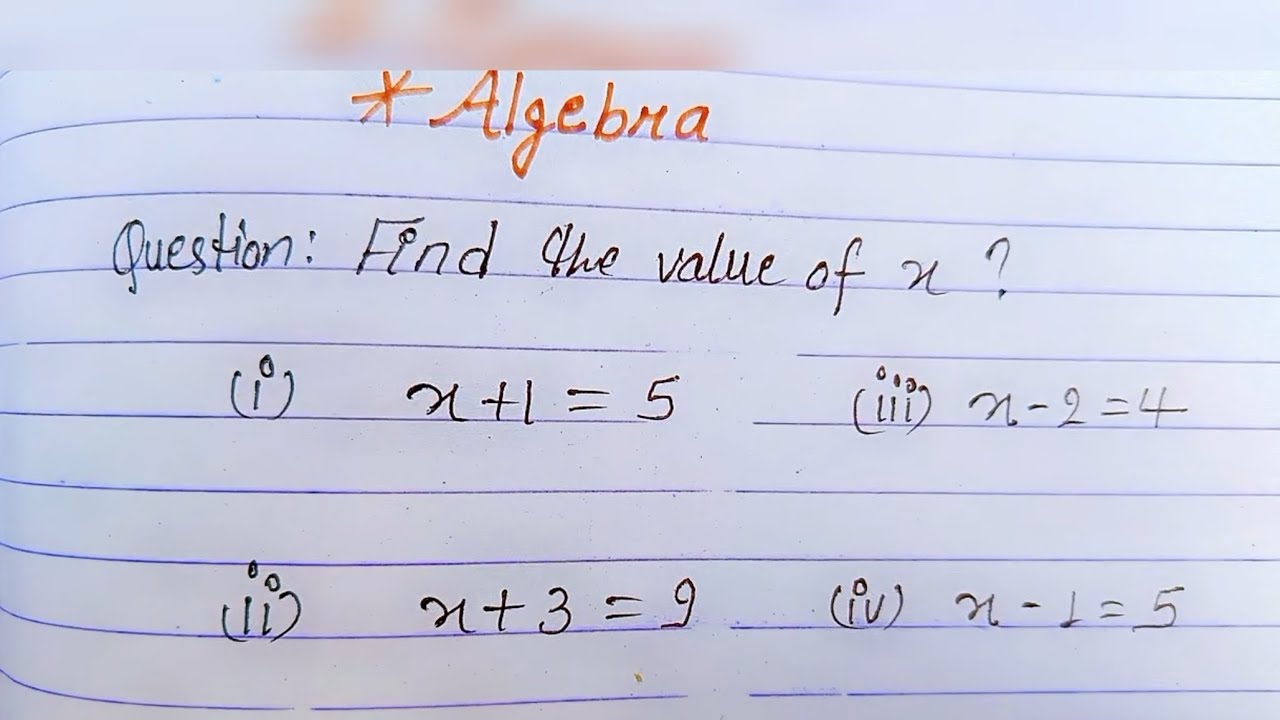 * Algebra
Question: Find the value of x ?
(i) x+1 = 5 (iii) x-2=4
(ii) x+3=9 (iv) x-1=5